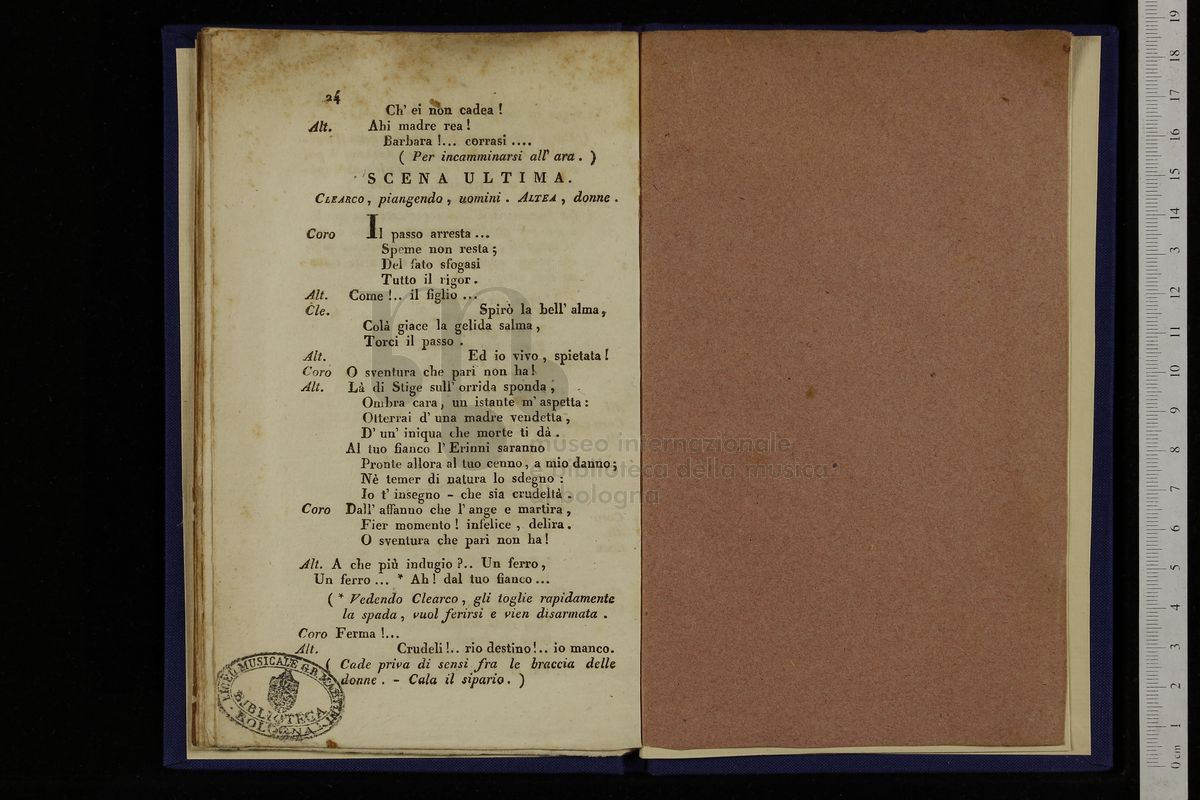 24
Ch' ei non cadea !
Alt. Ahi madre rea !
Barbara !... corrasi ....
( Per incamminarsi all' ara . )
SCENA ULTIMA.
CLEARCO , piangendo , uomini . ALTEA , donne .
Coro Il passo arresta ...
Speme non resta ;
Del fato sfogasi
Tutto il rigor .
Alt. Come !.. il figlio ...
Cle. Spirò la bell' alma ,
Colà giace la gelida salma ,
Torci il passo .
Alt. Ed io vivo , spietata !
Coro O sventura che pari non ha !
Alt. Là di Stige sull' orrida sponda ,
Ombra cara , un istante m' aspetta :
Otterrai d' una madre vendetta ,
D' un' iniqua che morte ti dà .
Al tuo fianco l' Erinni saranno
Pronte allora al tuo cenno , a mio danno ;
Nè temer di natura lo sdegno :
Io t' insegno - che sia crudeltà .
Coro Dall' affanno che l' ange e martira ,
Fier momento ! infelice , delira .
O sventura che pari non ha !
Alt. A che più indugio ?.. Un ferro ,
Un ferro ... * Ah ! dal tuo fianco ...
( * Vedendo Clearco , gli toglie rapidamente
la spada , vuol ferirsi e vien disarmata .
Coro Ferma !...
Alt. Crudeli !.. rio destino !.. io manco.
( Cade priva di sensi fra le braccia delle
donne . - Cala il sipario . )
LICEO MUSICALE G.B. MARTINI
BIBLIOTECA
BOLOGNA
museo internazionale
e biblioteca della musica
di bologna
0 cm 1 2 3 4 5 6 7 8 9 10 11 12 13 14 15 16 17 18 19